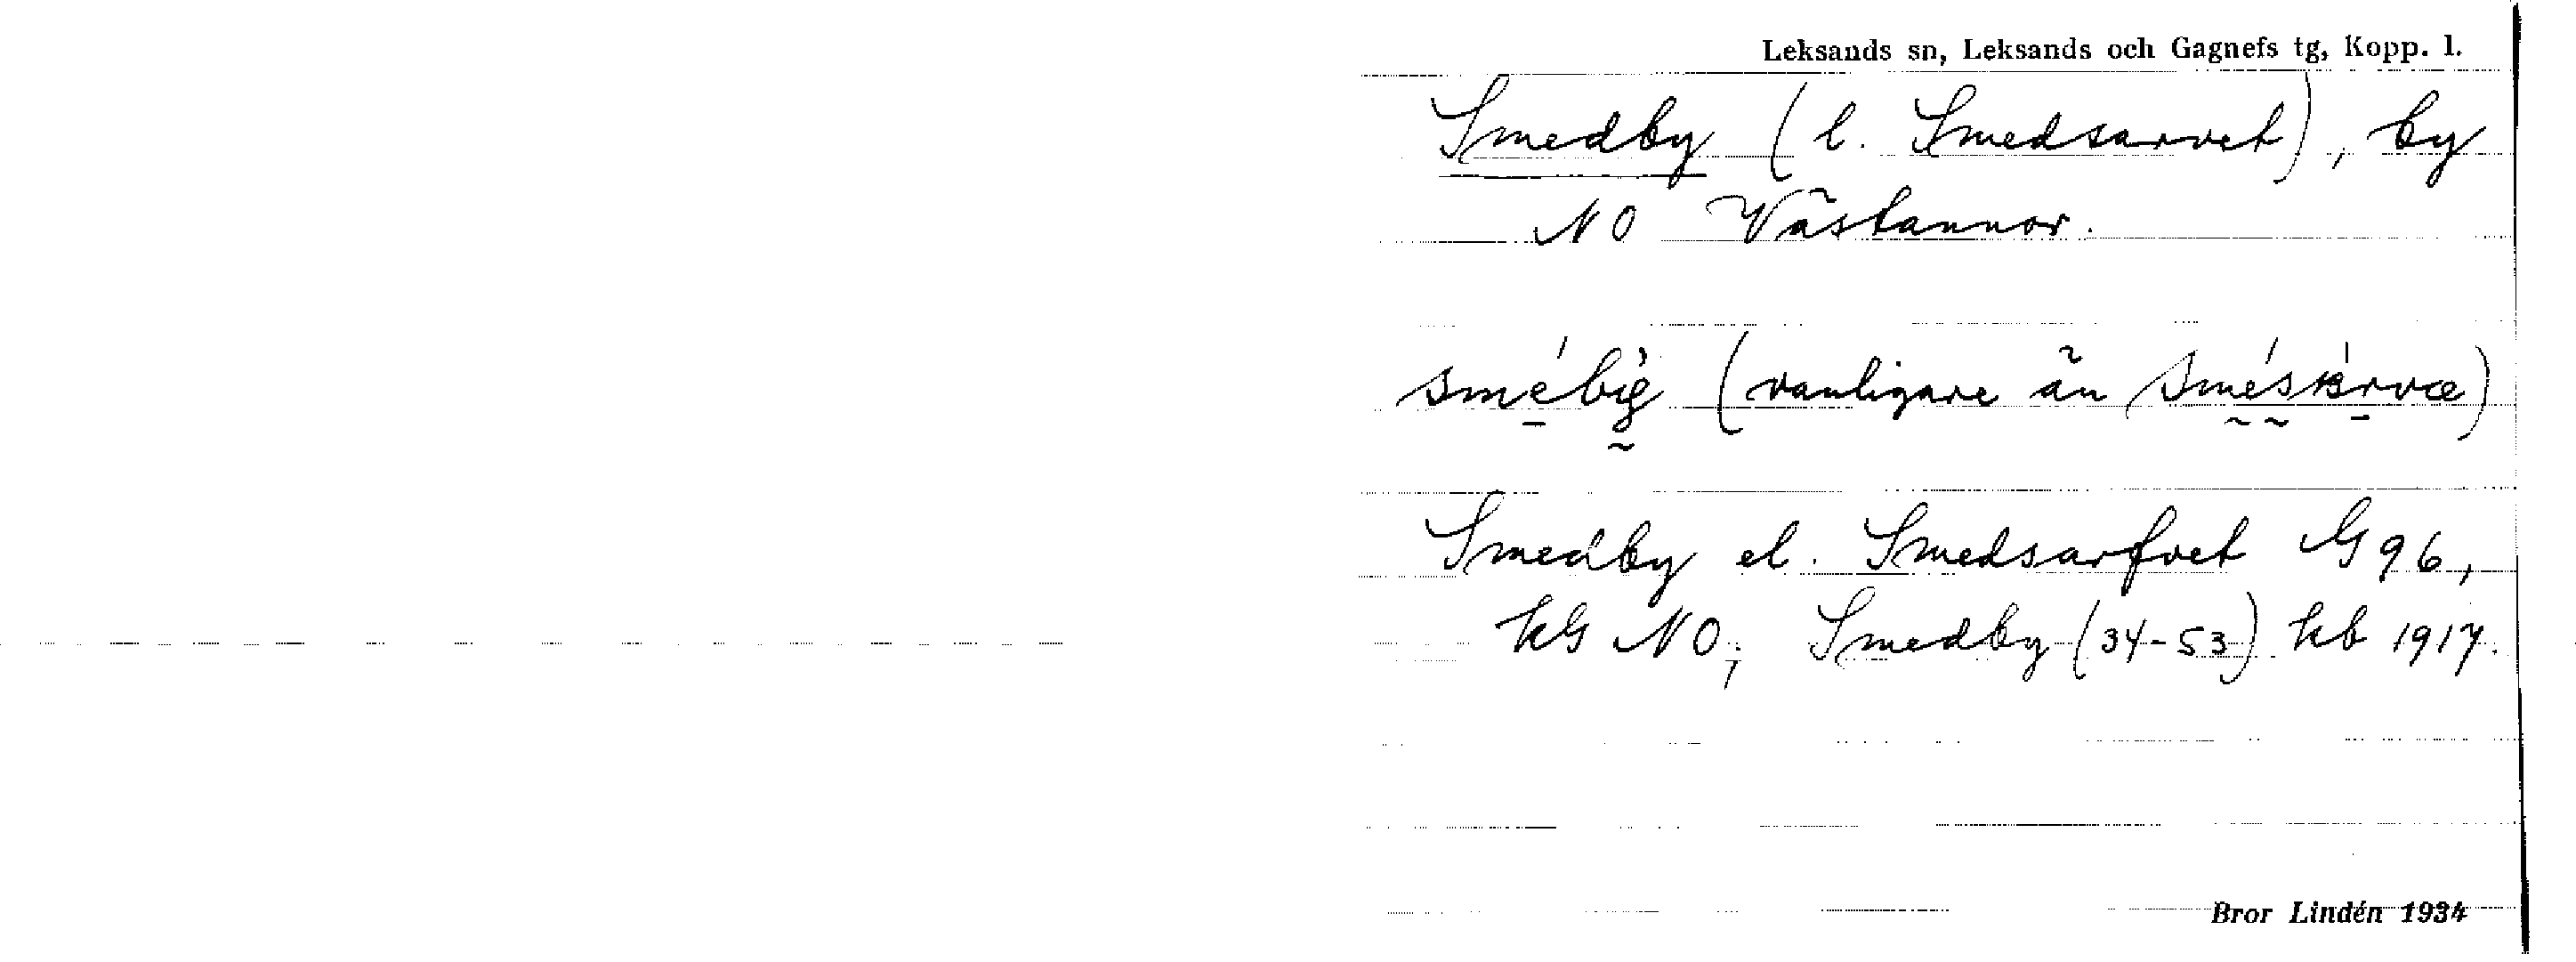 Leksands sn, Leksands och Gagnefs tg, Kopp. l.
Smedby (l. Smedsarvet), by
NO Västannor.
(vanligare än
Smedby el. Smedsarfvet G 96,
kG NO; Smedby (34-53) kb 1917.
Bror Lindén 1934